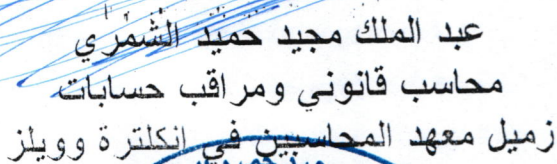 عبد الملك مجيد حميد الشمري
محاسب قانوني ومراقب حسابات
زميل معهد المحاسبين في انكلترة وويلز